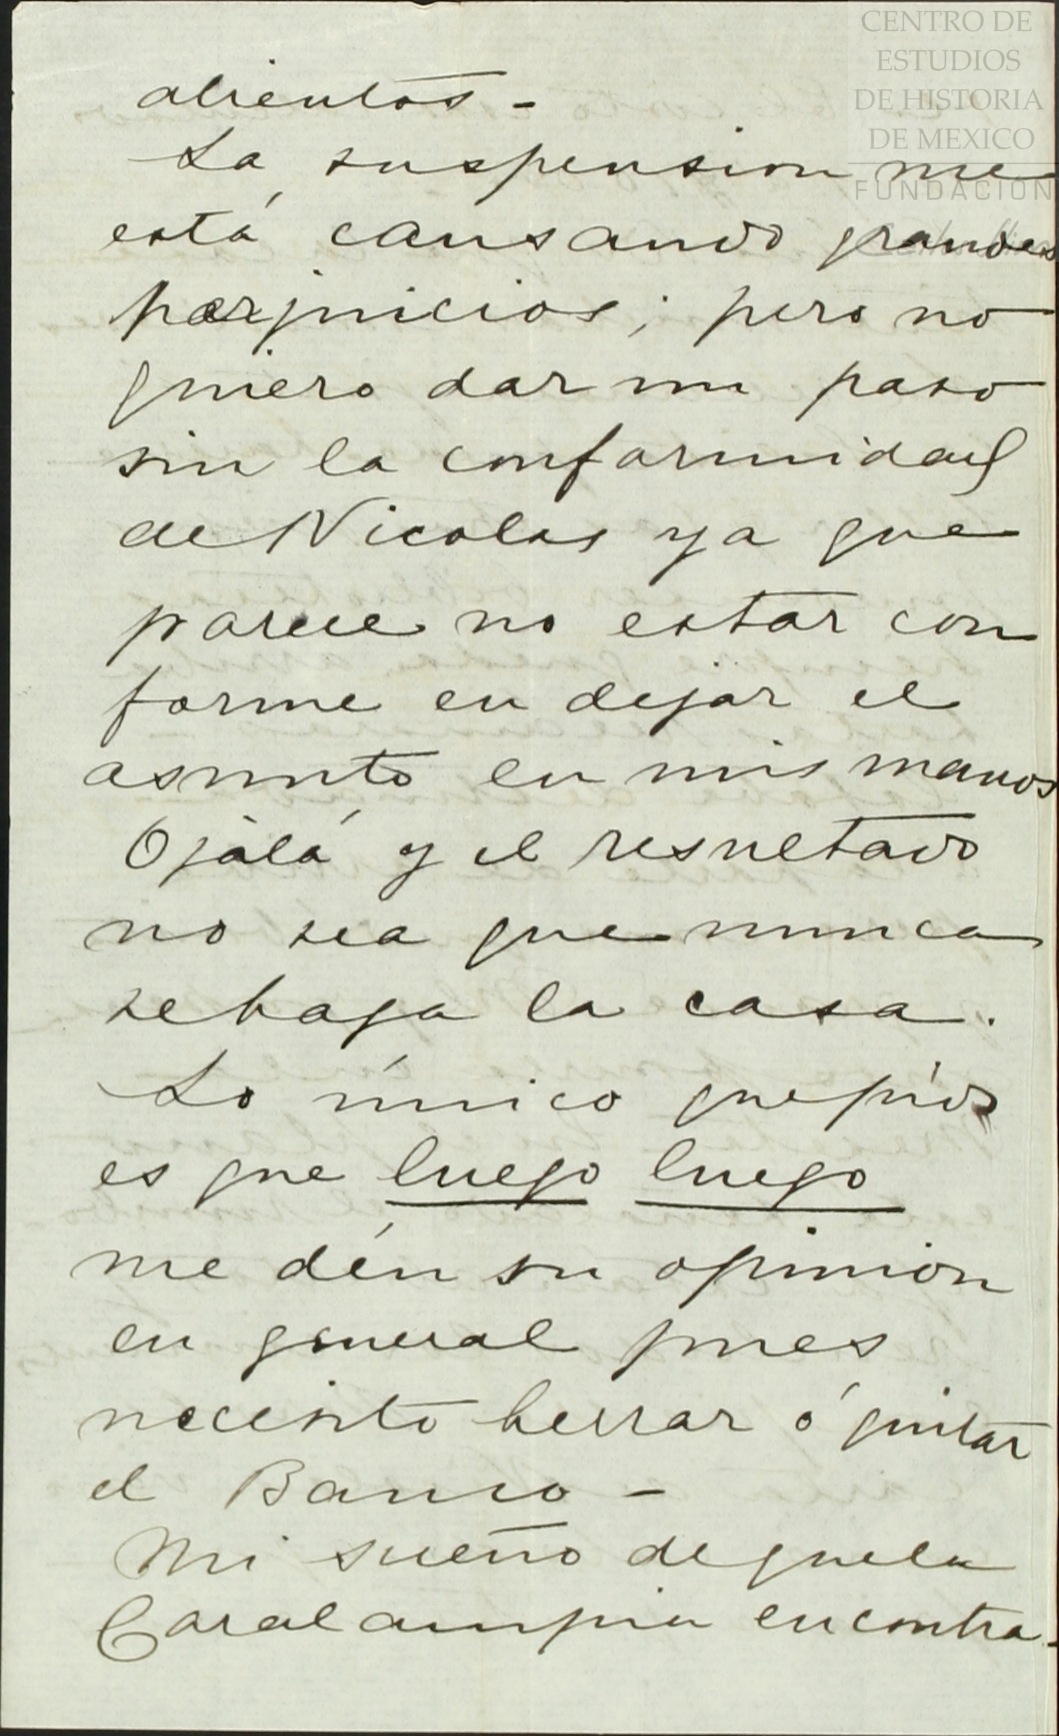 CENTRO DE
ESTUDIOS
DE HISTORIA
DE MEXICO
FUNDACIÓN
alientos -
La suspension me
está causando grandes
perjuicios; pero no
quiero dar un paso
sin la conformidad
de Nicolas ya que
parece no estar con
forme en dejar el
asunto en mis manos
Ojalá y el resultado
no sea que nunca
se haga la casa.
Lo único que pido
es que luego luego
me dén su opinion
en general pues
necesito herrar ó quitar
el Banco -
Mi sueño de que la
Caralampia encontra-